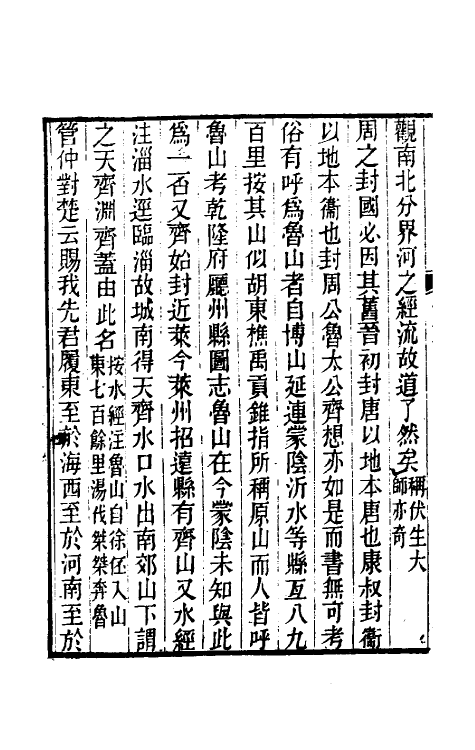 觀南北分界河之經流故道了然矣稱伏生大師亦奇
周之封國必因其舊晉初封唐以地本唐也康叔封衞
以地本衞也封周公魯太公齊想亦如是而書無可考
俗有呼爲魯山者自博山延連蒙陰沂水等縣亙八九
百里按其山似胡東樵禹貢錐指所稱原山而人皆呼
魯山考乾隆府廳州縣圖志魯山在今蒙陰未知與此
爲一否又齊始封近萊今萊州招遠縣有齊山又水經
注淄水逕臨淄故城南得天齊水口水出南郊山下謂
之天齊淵齊蓋由此名按水經注魯山自徐任入山東七百餘里湯伐桀桀奔魯
管仲對楚云賜我先君履東至於海西至於河南至於